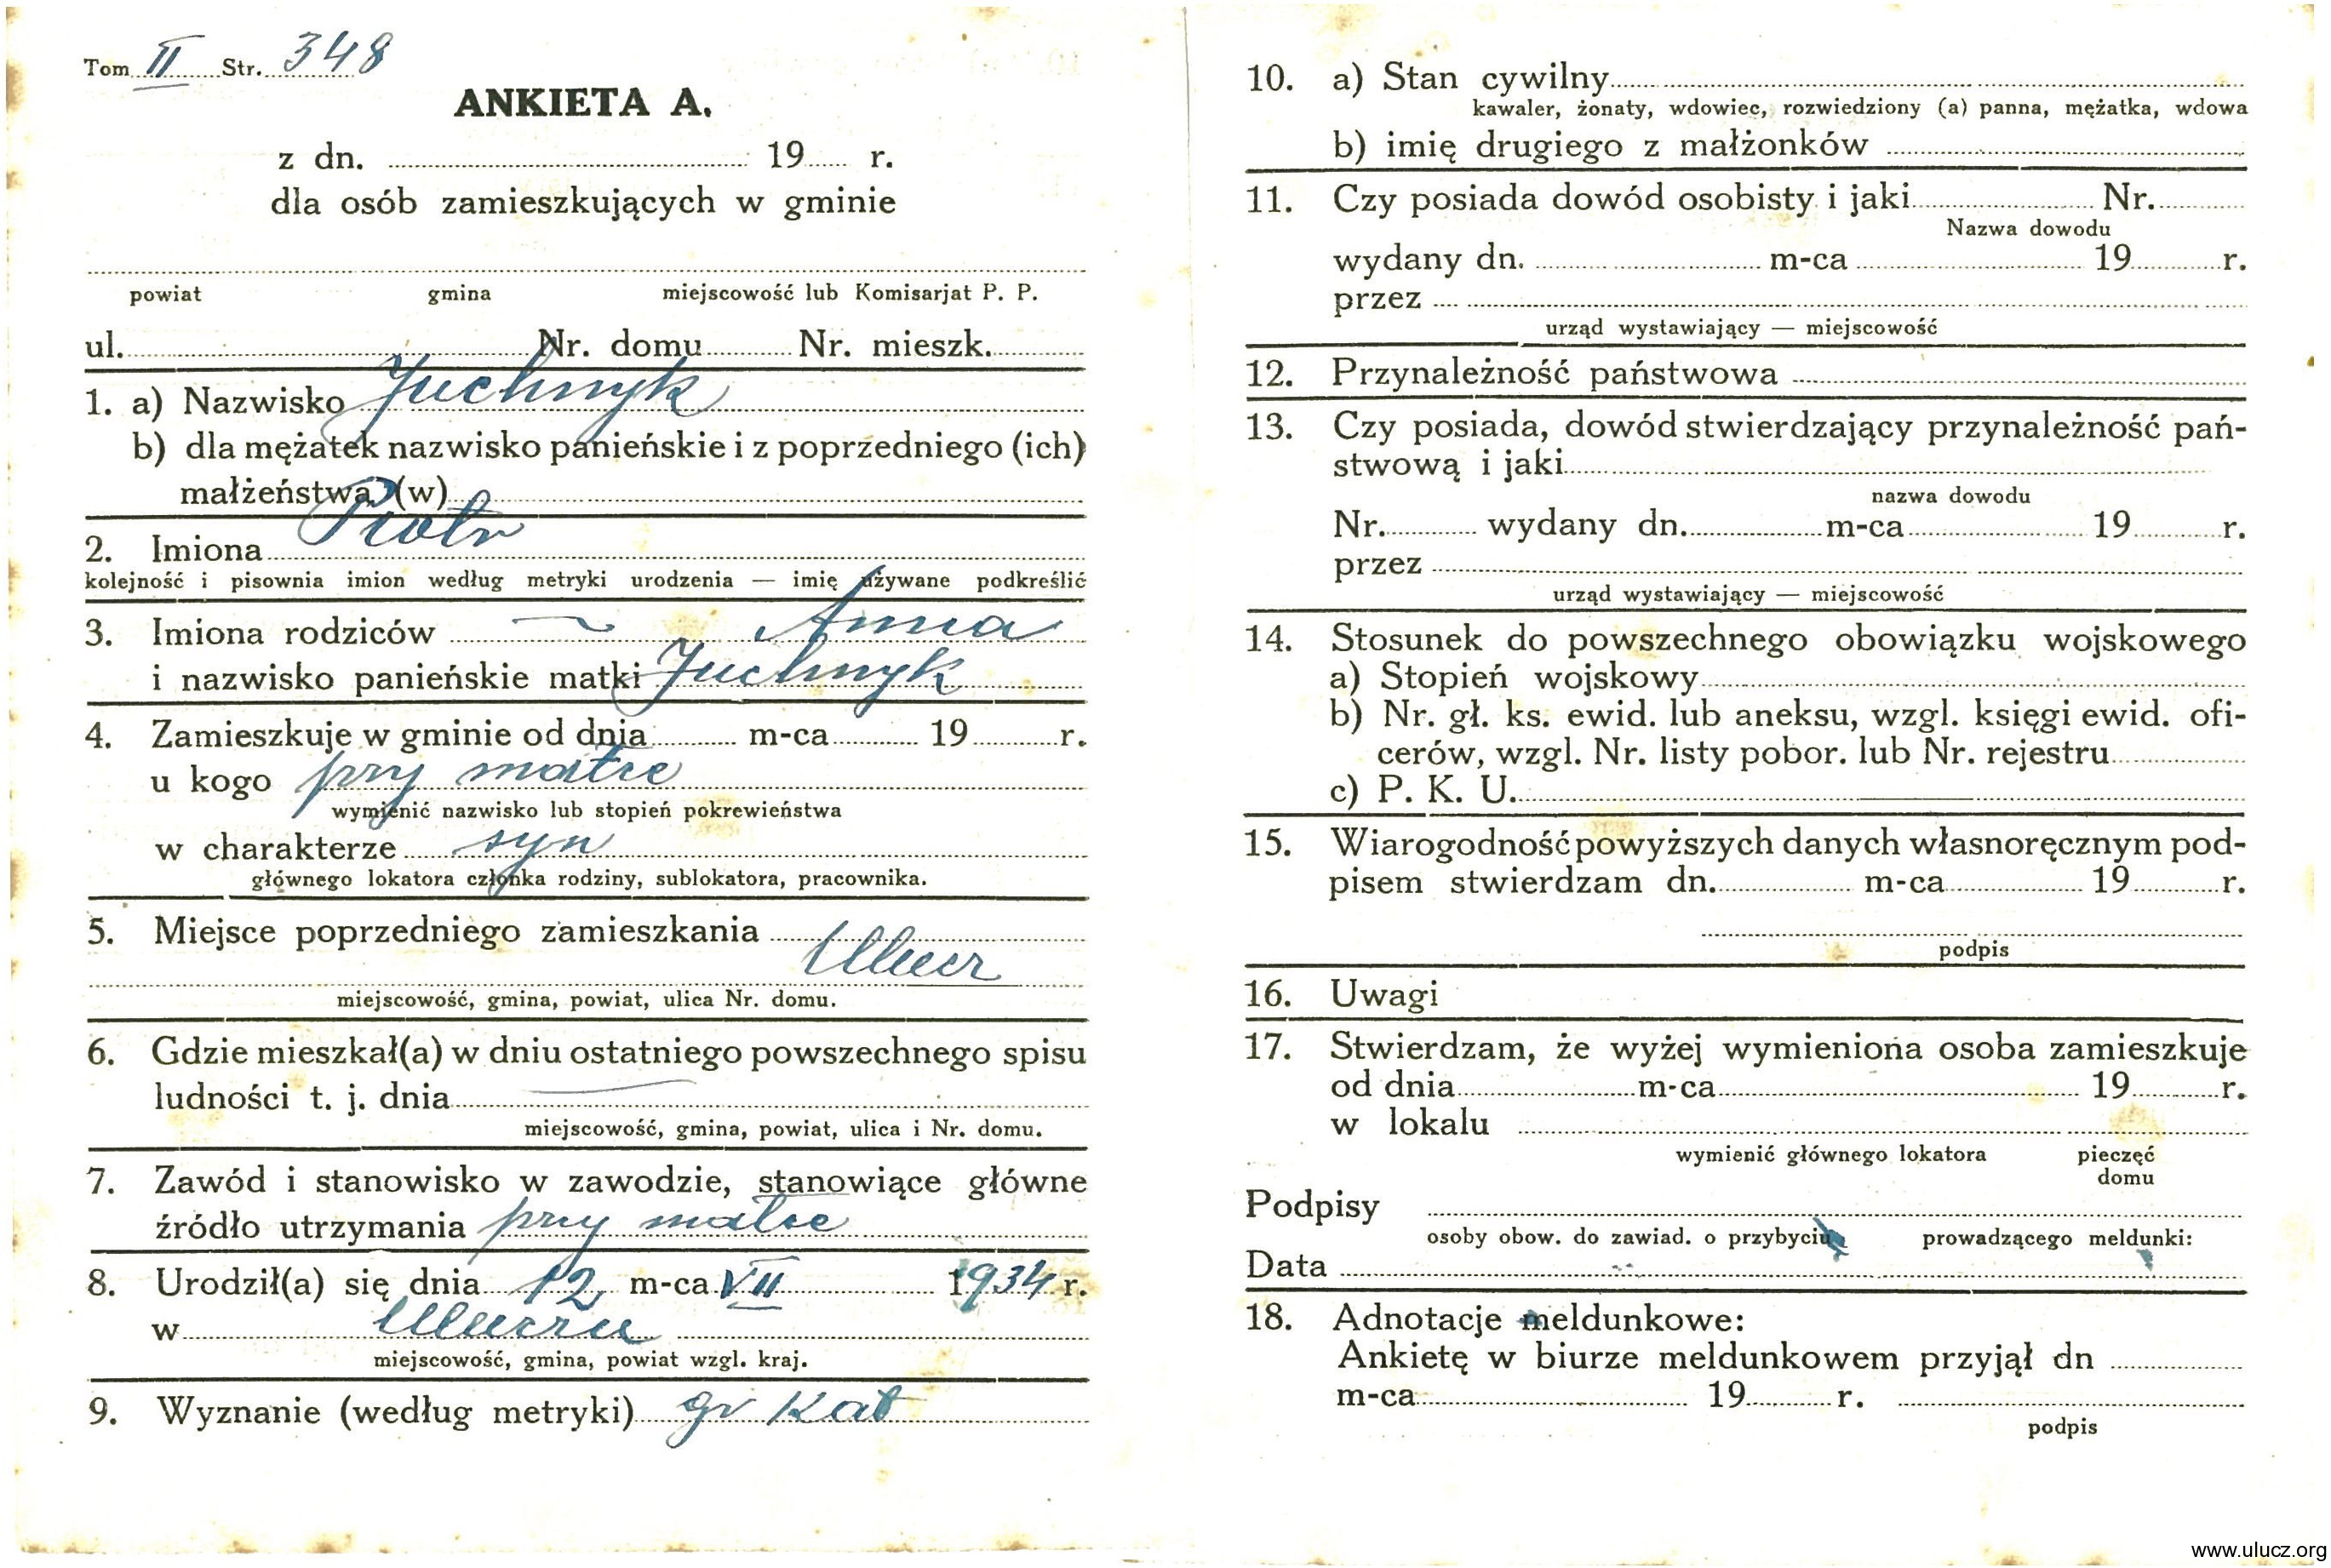 Tom II Str. 348
ANKIETA A.
z dn. 19 r.
dla osób zamieszkujących w gminie
powiat gmina miejscowość lub Komisarjat P. P.
ul. Nr. domu Nr. mieszk.
1. a) Nazwisko Juchnyk
b) dla mężatek nazwisko panieńskie i z poprzedniego (ich)
małżeństwa (w)
2. Imiona Piotr
kolejność i pisownia imion według metryki urodzenia — imię używane podkreślić
3. Imiona rodziców — Anna
i nazwisko panieńskie matki Juchnyk
4. Zamieszkuje w gminie od dnia m-ca 19 r.
u kogo pry matce
wymienić nazwisko lub stopień pokrewieństwa
w charakterze syn
głównego lokatora członka rodziny, sublokatora, pracownika.
5. Miejsce poprzedniego zamieszkania
Ulucz
miejscowość, gmina, powiat, ulica Nr. domu.
6. Gdzie mieszkał(a) w dniu ostatniego powszechnego spisu
ludności t. j. dnia —
miejscowość, gmina, powiat, ulica i Nr. domu.
7. Zawód i stanowisko w zawodzie, stanowiące główne
źródło utrzymania pry matce
8. Urodził(a) się dnia 12 m-ca VII 1934 r.
w Uluczu
miejscowość, gmina, powiat wzgl. kraj.
9. Wyznanie (według metryki) gr kat
10. a) Stan cywilny
kawaler, żonaty, wdowiec, rozwiedziony (a) panna, mężatka, wdowa
b) imię drugiego z małżonków
11. Czy posiada dowód osobisty i jaki Nr.
Nazwa dowodu
wydany dn. m-ca 19 r.
przez
urząd wystawiający — miejscowość
12. Przynależność państwowa
13. Czy posiada, dowód stwierdzający przynależność pań-
stwową i jaki
nazwa dowodu
Nr. wydany dn. m-ca 19 r.
przez
urząd wystawiający — miejscowość
14. Stosunek do powszechnego obowiązku wojskowego
a) Stopień wojskowy
b) Nr. gł. ks. ewid. lub aneksu, wzgl. księgi ewid. ofi-
cerów, wzgl. Nr. listy pobor. lub Nr. rejestru
c) P. K. U.
15. Wiarogodność powyższych danych własnoręcznym pod-
pisem stwierdzam dn. m-ca 19 r.
podpis
16. Uwagi
17. Stwierdzam, że wyżej wymieniona osoba zamieszkuje
od dnia m-ca 19 r.
w lokalu
wymienić głównego lokatora pieczęć
domu
Podpisy
osoby obow. do zawiad. o przybyciu prowadzącego meldunki:
Data
18. Adnotacje meldunkowe:
Ankietę w biurze meldunkowem przyjął dn
m-ca 19 r.
podpis
www.ulucz.org